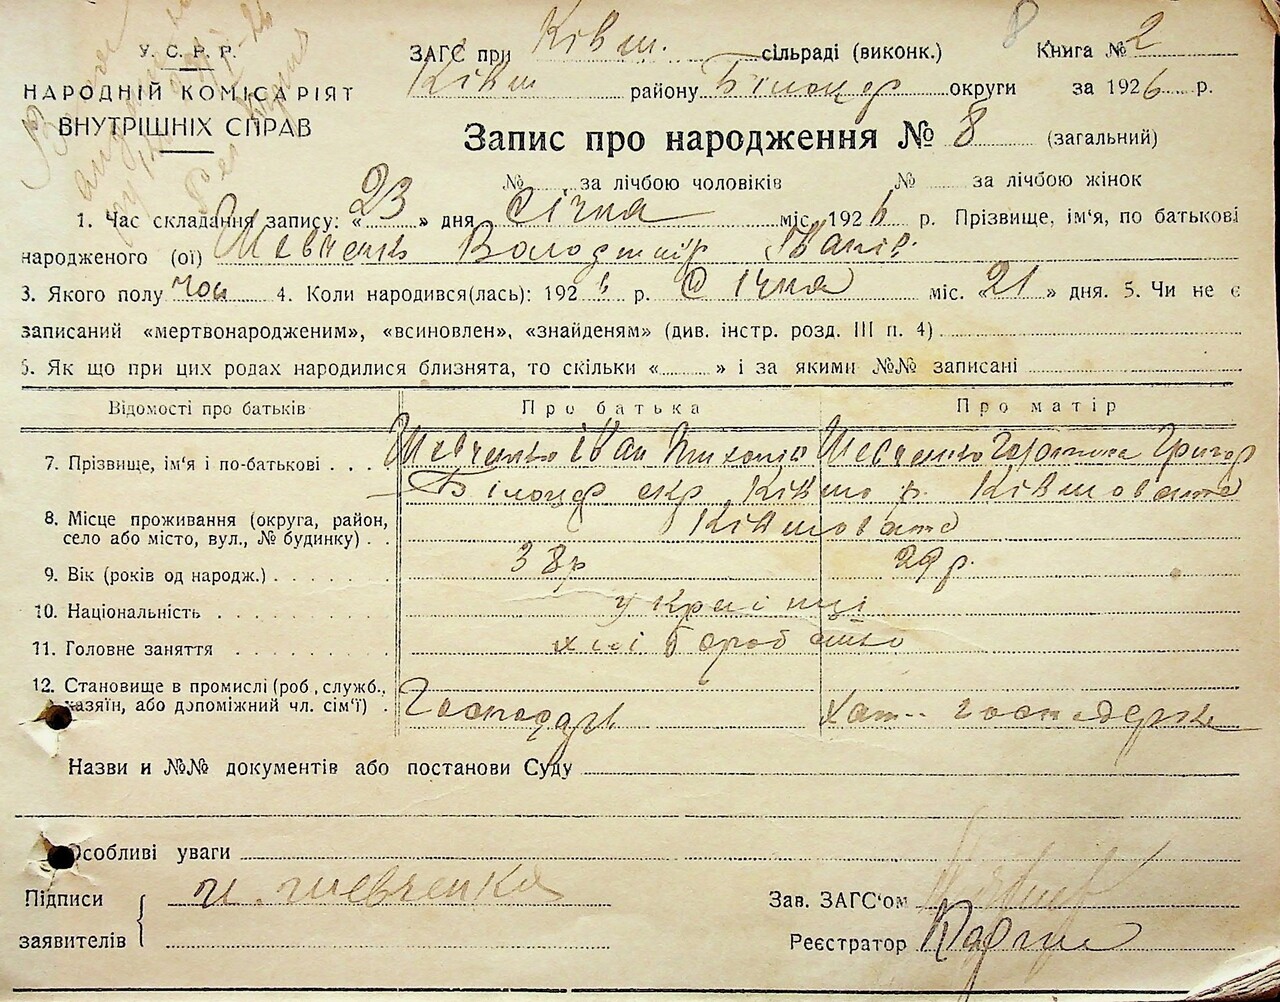 У. С. Р. Р.
НАРОДНІЙ КОМІСАРІЯТ
ВНУТРІШНІХ СПРАВ
8
ЗАГС при Ківш. сільраді (виконк.) Книга № 2
Ківш району Білоцер округи за 1926 р.
Запис про народження № 8 (загальний)
№ за лічбою чоловіків № за лічбою жінок
1. Час складання запису: «23» дня Січня міс. 1926 р. Прізвище, ім'я, по батькові
народженого (ої) Шевченко Володимир Іванів.
3. Якого полу чол 4. Коли народився(лась): 1926 р. Січня міс. «21» дня. 5. Чи не є
записаний «мертвонародженим», «всиновлен», «знайденям» (див. інстр. розд. III п. 4)
6. Як що при цих родах народилися близнята, то скільки « » і за якими №№ записані
Відомості про батьків Про батька Про матір
7. Прізвище, ім'я і по-батькові . . . Шевченко Іван Шевченко Григор
Білоцер окр. Ківш р. Ківшовата
8. Місце проживання (округа, район,
село або місто, вул., № будинку) . . Ківшовата
9. Вік (років од народж.) . . . . . . . 38р 29 р.
10. Національність . . . . . . . . . українці
11. Головне заняття . . . . . . . . хліборобство
12. Становище в промислі (роб., служб.,
хазяїн, або допоміжний чл. сім'ї) . Господарь хат. господарка
Назви и №№ документів або постанови Суду
Особливі уваги
Підписи
заявителів
и. шевченко
Зав. ЗАГС'ом
Реєстратор